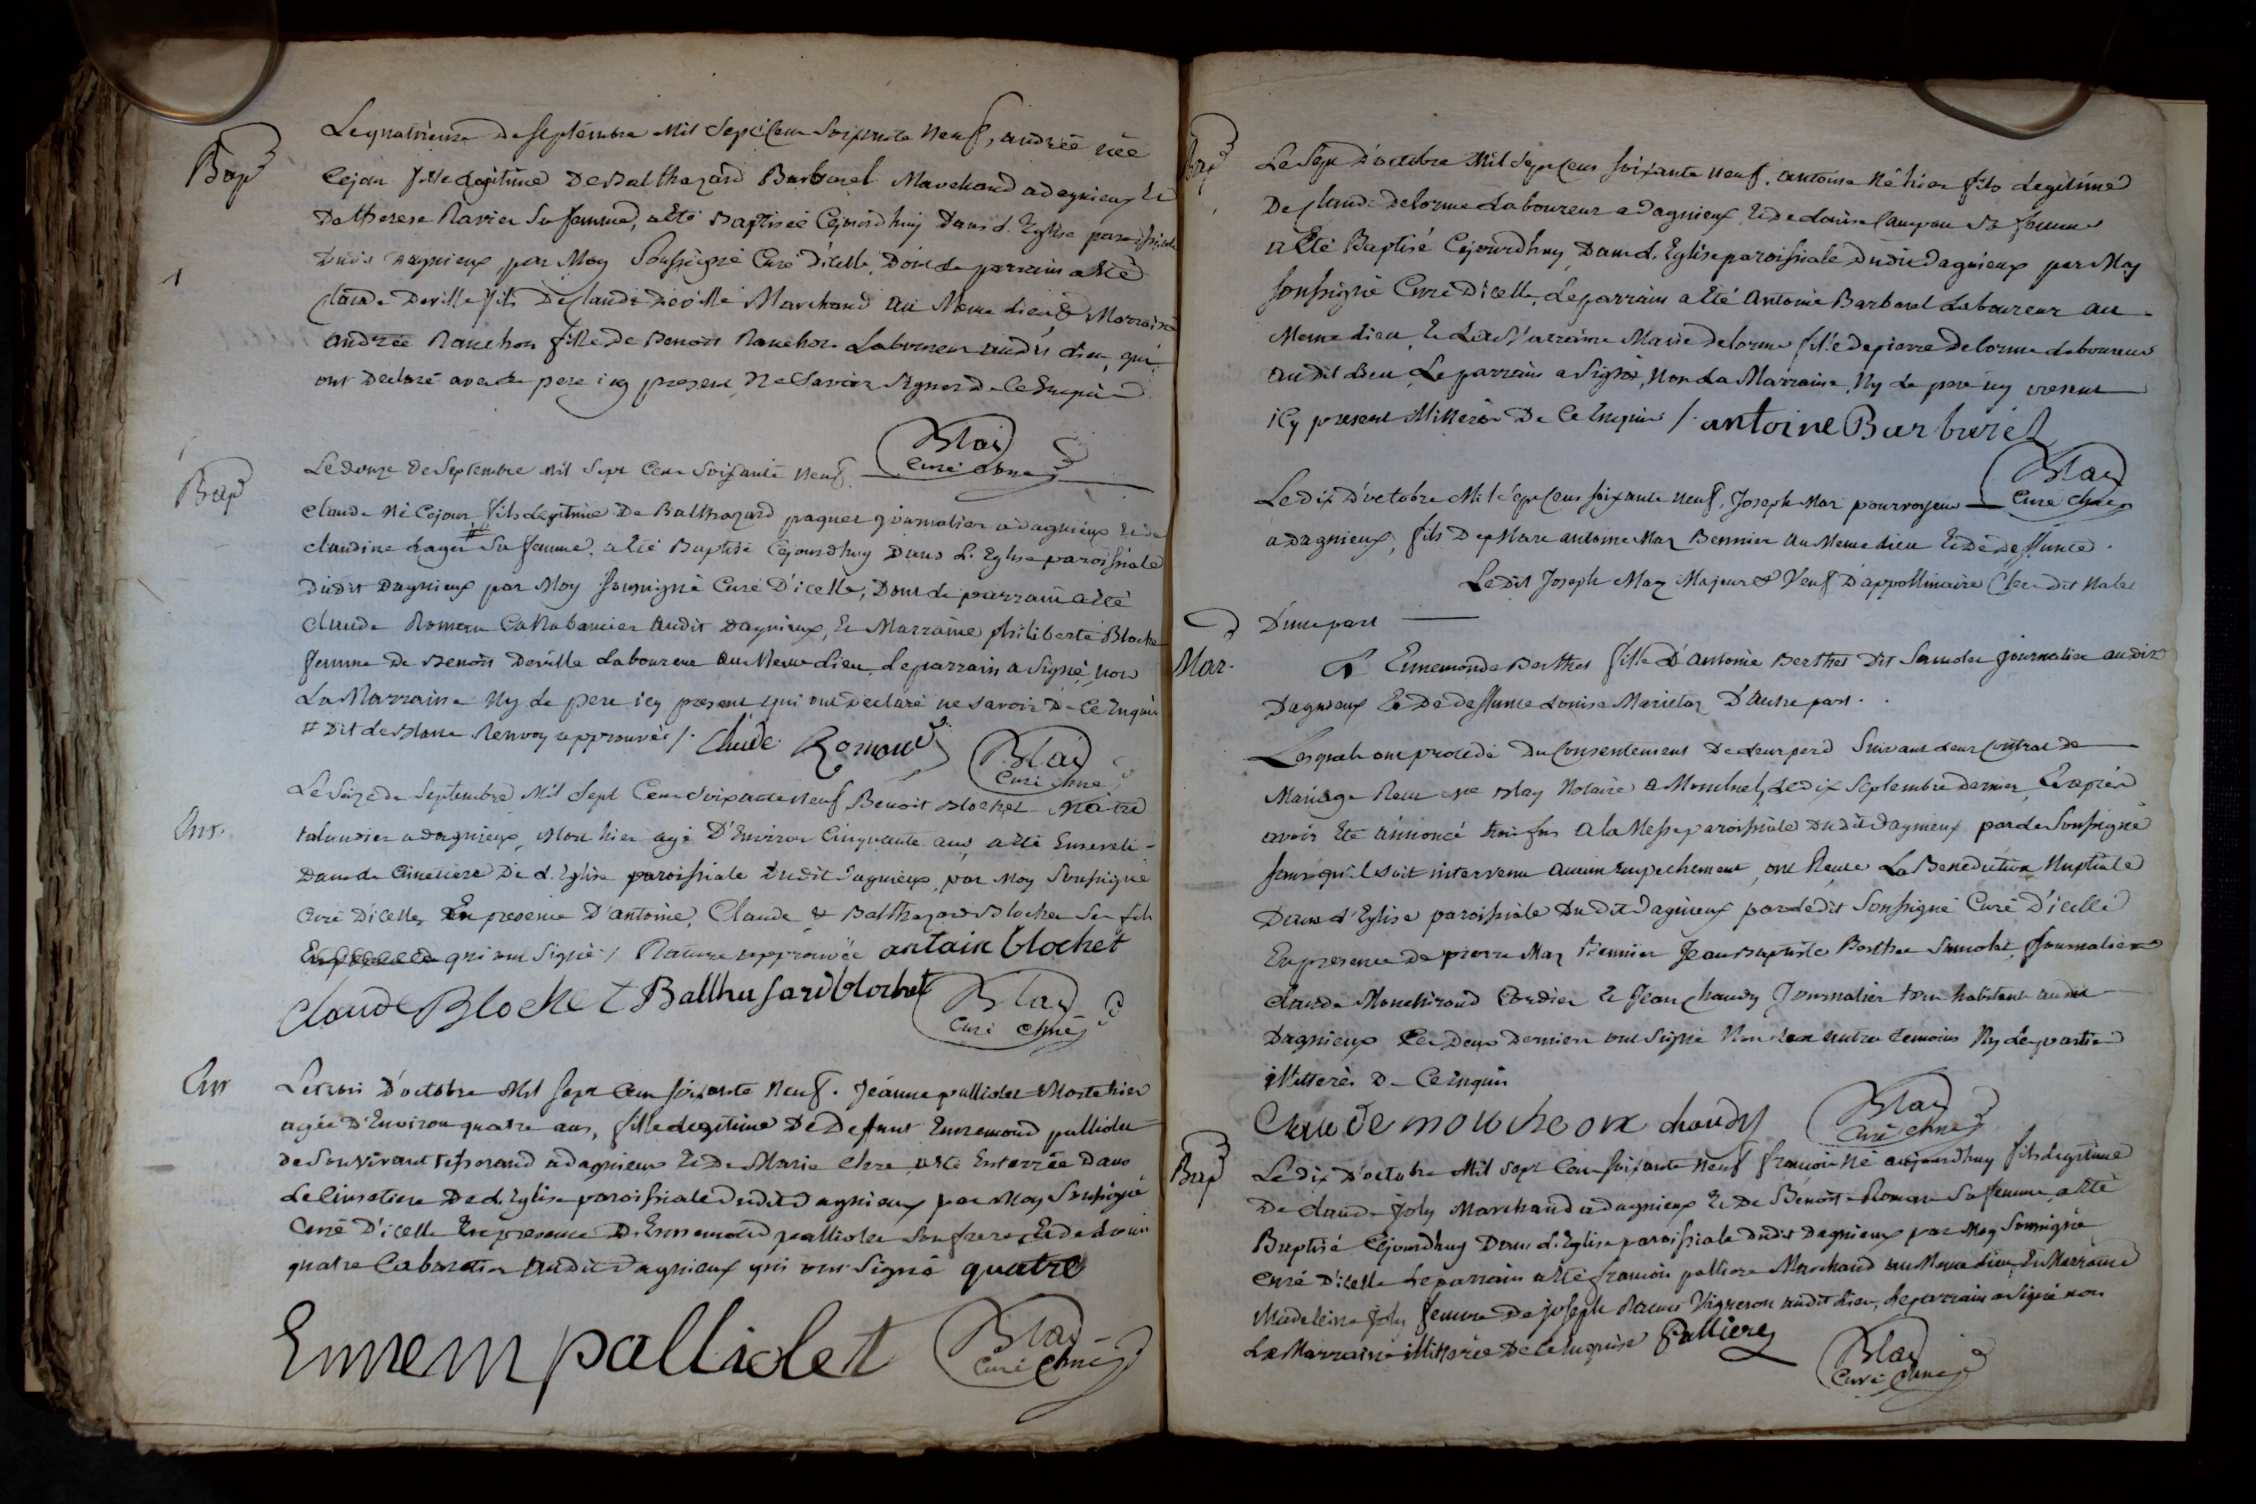 Bap
Le quatrieme de septembre Mil Sept Cent Soixante Neuf, andrée née
Cejour fille Legitime De Balthazard Barbarel Marchand a dagnieux Et
De therese Ravier Sa femme, a Eté Baptisée Cejourdhuy Dans L'Eglise paroissiale
Dudit Dagnieux, par Moy Soussigné Curé D'icelle, Dont Le parrain a Eté
Claude Deville fils De Claude Deville Marchand au Meme Lieu & Marraine
andrée Ranchon fille De Benoit Ranchon Laboureur audit Lieu, qui
ont Declaré avec Le pere icy present Ne Savoir Signer De Ce Enquis
Blay
Curé
Bap
Le douze de Septembre mil Sept Cent Soixante Neuf
Claude Né Cejour fils Legitime De Balthazard paquet journalier a dagnieux Et de
Claudine # Sa femme, a Eté Baptisé Cejourdhuy Dans L'Eglise paroissiale
Dudit Dagnieux par Moy Soussigné Curé D'icelle, Dont Le parrain a Eté
Claude Roman Cabaretier audit Dagnieux, Et Marraine philiberte Blochet
femme De Benoit Deville Laboureur au Meme Lieu, Le parrain a Signé, Non
La Marraine Ny Le pere icy present qui ont Declaré ne Savoir De Ce Enquis
# Dit Renvoy approuvé /. Claude Roman
Blay
Curé
Ent.
Le Seize de Septembre Mil Sept Cent Soixante Neuf Benoit Blochet Maitre
a dagnieux, Mort hier agé D'Environ Cinquante ans, a Eté Enseveli
Dans Le Cimetiere De L'Eglise paroissiale Dudit Dagnieux, par Moy Soussigné
Curé D'icelle, En presence D'antoine, Claude & Balthazard Blochet Ses fils
qui ont Signé / Rature approuvée antoin blochet
Claude Blochet Balthasard blochet
Blay
Curé
Ent
Le trois D'octobre Mil Sept Cent Soixante Neuf. Jeanne palliolet Morte hier
agée D'Environ quatre ans, fille Legitime De Defunt Ennemond palliolet
De Son vivant a dagnieux Et De Marie a Eté Enterrée Dans
Le Cimetiere De L'Eglise paroissiale Dudit Dagnieux par Moy Soussigné
Curé D'icelle En presence D'Ennemond palliolet Son frere, Et de Louis
quatre Cabaretier audit Dagnieux qui ont Signé quatre
Ennem palliolet
Blay
Curé
Bap
Le Sept D'octobre Mil Sept Cent Soixante Neuf, antoine Né hier fils Legitime
De Claude Delorme Laboureur a Dagnieux Et de Louise Sa femme
a Eté Baptisé Cejourdhuy, Dans L'Eglise paroissiale Dudit Dagnieux par Moy
Soussigné Curé D'icelle, Le parrain a Eté Antoine Barbarel Laboureur au
Meme Lieu, Et La Marraine Marie Delorme fille De pierre Delorme Laboureur
audit Lieu, Le parrain a Signé, Non La Marraine, Ny Le pere
icy present De Ce Enquis /. antoine Barbarel
Blay
Curé
Le Dix D'octobre Mil Sept Cent Soixante Neuf, Joseph Maz pourvoyeur
a Dagnieux, fils De antoine Maz au Meme Lieu Et De Deffunte
Le Dit Joseph Maz Majeur & Veuf D'appollinaire
D'une part
Mar.
& Ennemonde Berthet fille D'antoine Berthet Dit journalier audit
Dagnieux Et De Deffunte Louise D'autre part.
Lesquels ont procédé Du Consentement De Leur pere Suivant Leur Contrat de
Mariage Recu Blay Notaire a Montluel, Le Dix Septembre Dernier, Et après
avoir Eté annoncé trois fois a la Messe paroissiale Dudit Dagnieux par Le Soussigné
Sans qu'il Soit intervenu aucun Empechement, ont Recue La Benediction Nuptiale
Dans L'Eglise paroissiale Du Dit Dagnieux par Ledit Soussigné Curé D'icelle
En presence De pierre Maz Jean Baptiste Berthet journalier
Claude Cordier Et Jean Chaudy Journalier tous habitants audit
Dagnieux Les Deux Derniers ont Signé Non Les autres temoins Ny Les parties
De Ce Enquis
Claude chaudy
Blay
Curé
Bap
Le Dix D'octobre Mil Sept Cent Soixante Neuf françois Né aujourdhuy fils Legitime
De Claude Joly Marchand a dagnieux Et De Benoite Roman Sa femme, a Eté
Baptisé Cejourdhuy Dans L'Eglise paroissiale Dudit Dagnieux par Moy Soussigné
Curé D'icelle Le parrain a Eté françois palliere Marchand au Meme Lieu, Et Marraine
Madeleine Joly femme De joseph Vigneron audit Lieu, Le parrain a Signé non
La Marraine De Ce Enquise Palliere
Blay
Curé